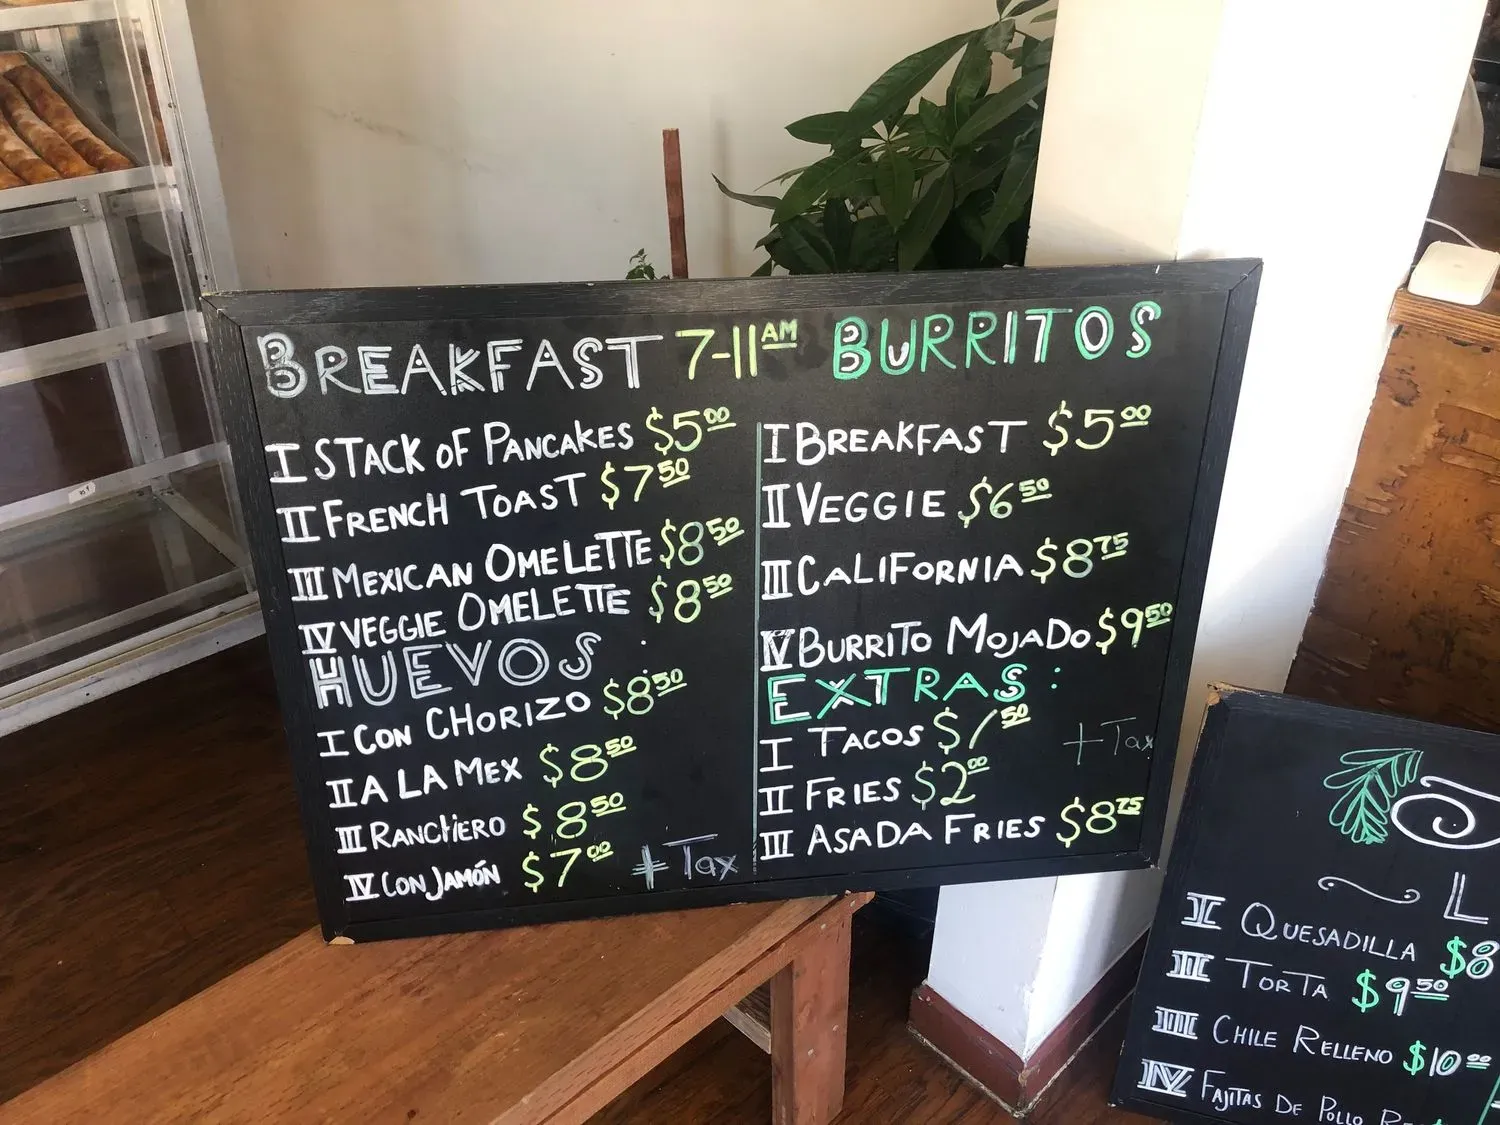 BREAKFAST 7-11AM
I STACK OF PANCAKES $500
II FRENCH TOAST $750
III MEXICAN OMELETTE $850
IV VEGGIE OMELETTE $850
HUEVOS
I CON CHORIZO $850
II A LA MEX $850
III RANCHERO $850
IV CON JAMÓN $700
+ Tax
BURRITOS
I BREAKFAST $500
II VEGGIE $650
III CALIFORNIA $875
IV BURRITO MOJADO $950
EXTRAS:
I TACOS $150
+ Tax
II FRIES $200
III ASADA FRIES $875
I QUESADILLA $8
II TORTA $950
III CHILE RELLENO $1000
IV FAJITAS DE POLLO